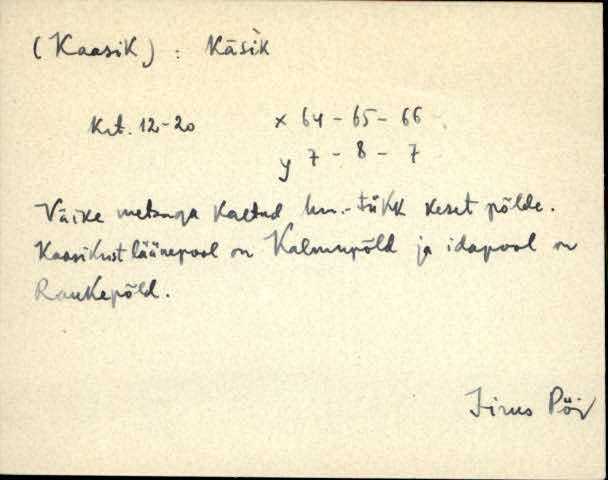 (Kaasik) : Käsik
Krt. 12-20 x 64 - 65 - 66
y 7 - 8 - 7
Väike metsaga kaetud hm.-tükk keset põlde.
Kaasikust läänepool on Kalmupõld ja idapool on
Raukepõld.